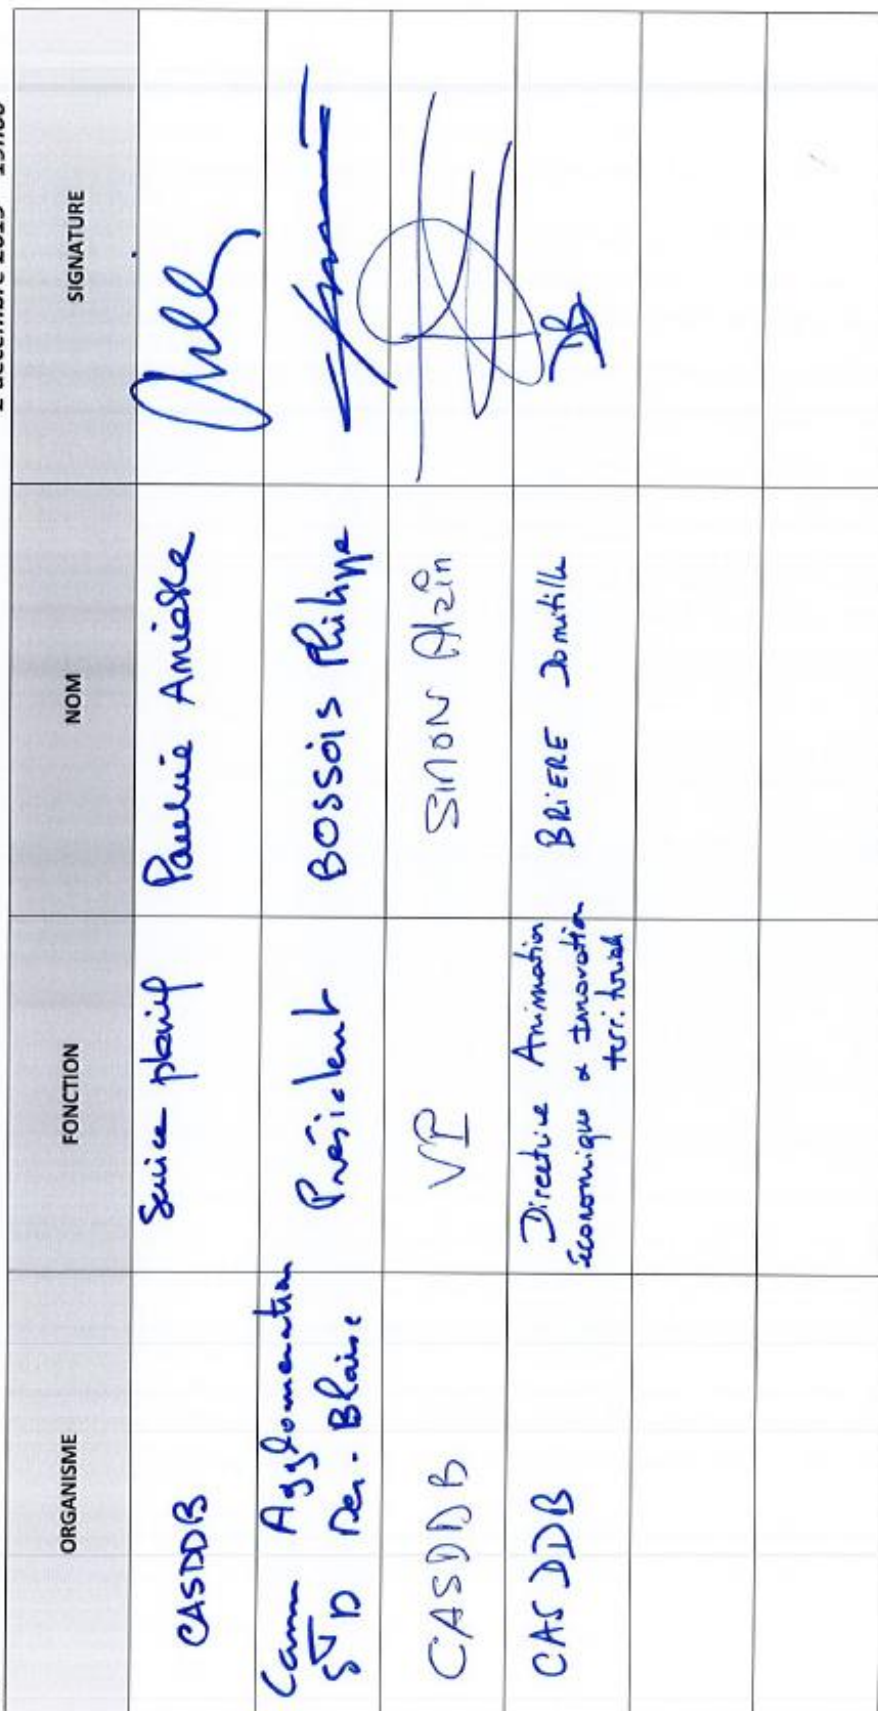 ORGANISME FONCTION NOM SIGNATURE
CASDDB Service planif Pauline
Comm Agglomeration
St D Der-Blaise Président BOSSOIS Philippe
CASDDB VP SIMON Alain
CAS DDB Directrice Animation
économique & Innovation
territoriale BRIERE Domitille
DB